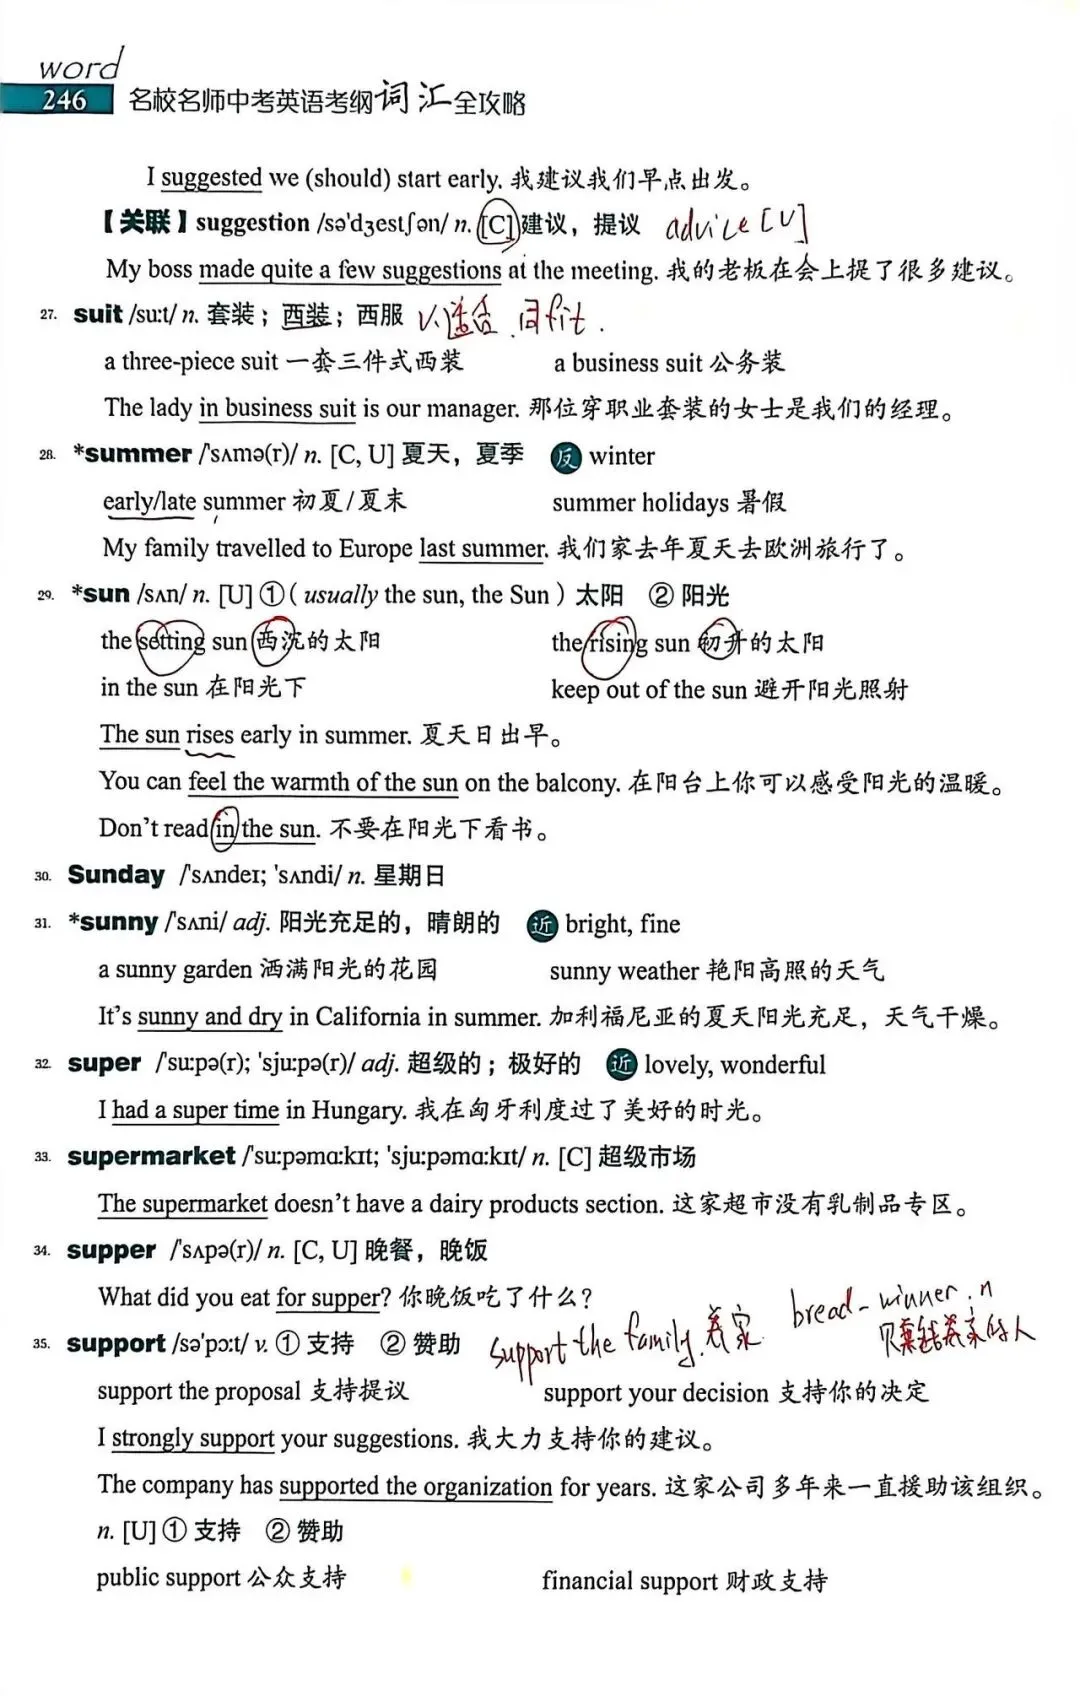 word
246 名校名师中考英语考纲词汇全攻略
I suggested we (should) start early. 我建议我们早点出发。
【关联】suggestion /sə'dʒestʃən/ n. [C]建议，提议 advice [U]
My boss made quite a few suggestions at the meeting. 我的老板在会上提了很多建议。
27. suit /suːt/ n. 套装；西装；西服 v.适合.同fit.
a three-piece suit 一套三件式西装 a business suit 公务装
The lady in business suit is our manager. 那位穿职业套装的女士是我们的经理。
28. *summer /'sʌmə(r)/ n. [C, U] 夏天，夏季 反 winter
early/late summer 初夏/夏末 summer holidays 暑假
My family travelled to Europe last summer. 我们家去年夏天去欧洲旅行了。
29. *sun /sʌn/ n. [U] ①（usually the sun, the Sun）太阳 ② 阳光
the setting sun 西沉的太阳 the rising sun 初升的太阳
in the sun 在阳光下 keep out of the sun 避开阳光照射
The sun rises early in summer. 夏天日出早。
You can feel the warmth of the sun on the balcony. 在阳台上你可以感受阳光的温暖。
Don't read in the sun. 不要在阳光下看书。
30. Sunday /'sʌndeɪ; 'sʌndi/ n. 星期日
31. *sunny /'sʌni/ adj. 阳光充足的，晴朗的 近 bright, fine
a sunny garden 洒满阳光的花园 sunny weather 艳阳高照的天气
It's sunny and dry in California in summer. 加利福尼亚的夏天阳光充足，天气干燥。
32. super /'suːpə(r); 'sjuːpə(r)/ adj. 超级的；极好的 近 lovely, wonderful
I had a super time in Hungary. 我在匈牙利度过了美好的时光。
33. supermarket /'suːpəmɑːkɪt; 'sjuːpəmɑːkɪt/ n. [C] 超级市场
The supermarket doesn't have a dairy products section. 这家超市没有乳制品专区。
34. supper /'sʌpə(r)/ n. [C, U] 晚餐，晚饭
What did you eat for supper? 你晚饭吃了什么？
bread-winner.n
35. support /sə'pɔːt/ v. ① 支持 ② 赞助 support the family.养家 钱养家的人
support the proposal 支持提议 support your decision 支持你的决定
I strongly support your suggestions. 我大力支持你的建议。
The company has supported the organization for years. 这家公司多年来一直援助该组织。
n. [U] ① 支持 ② 赞助
public support 公众支持 financial support 财政支持